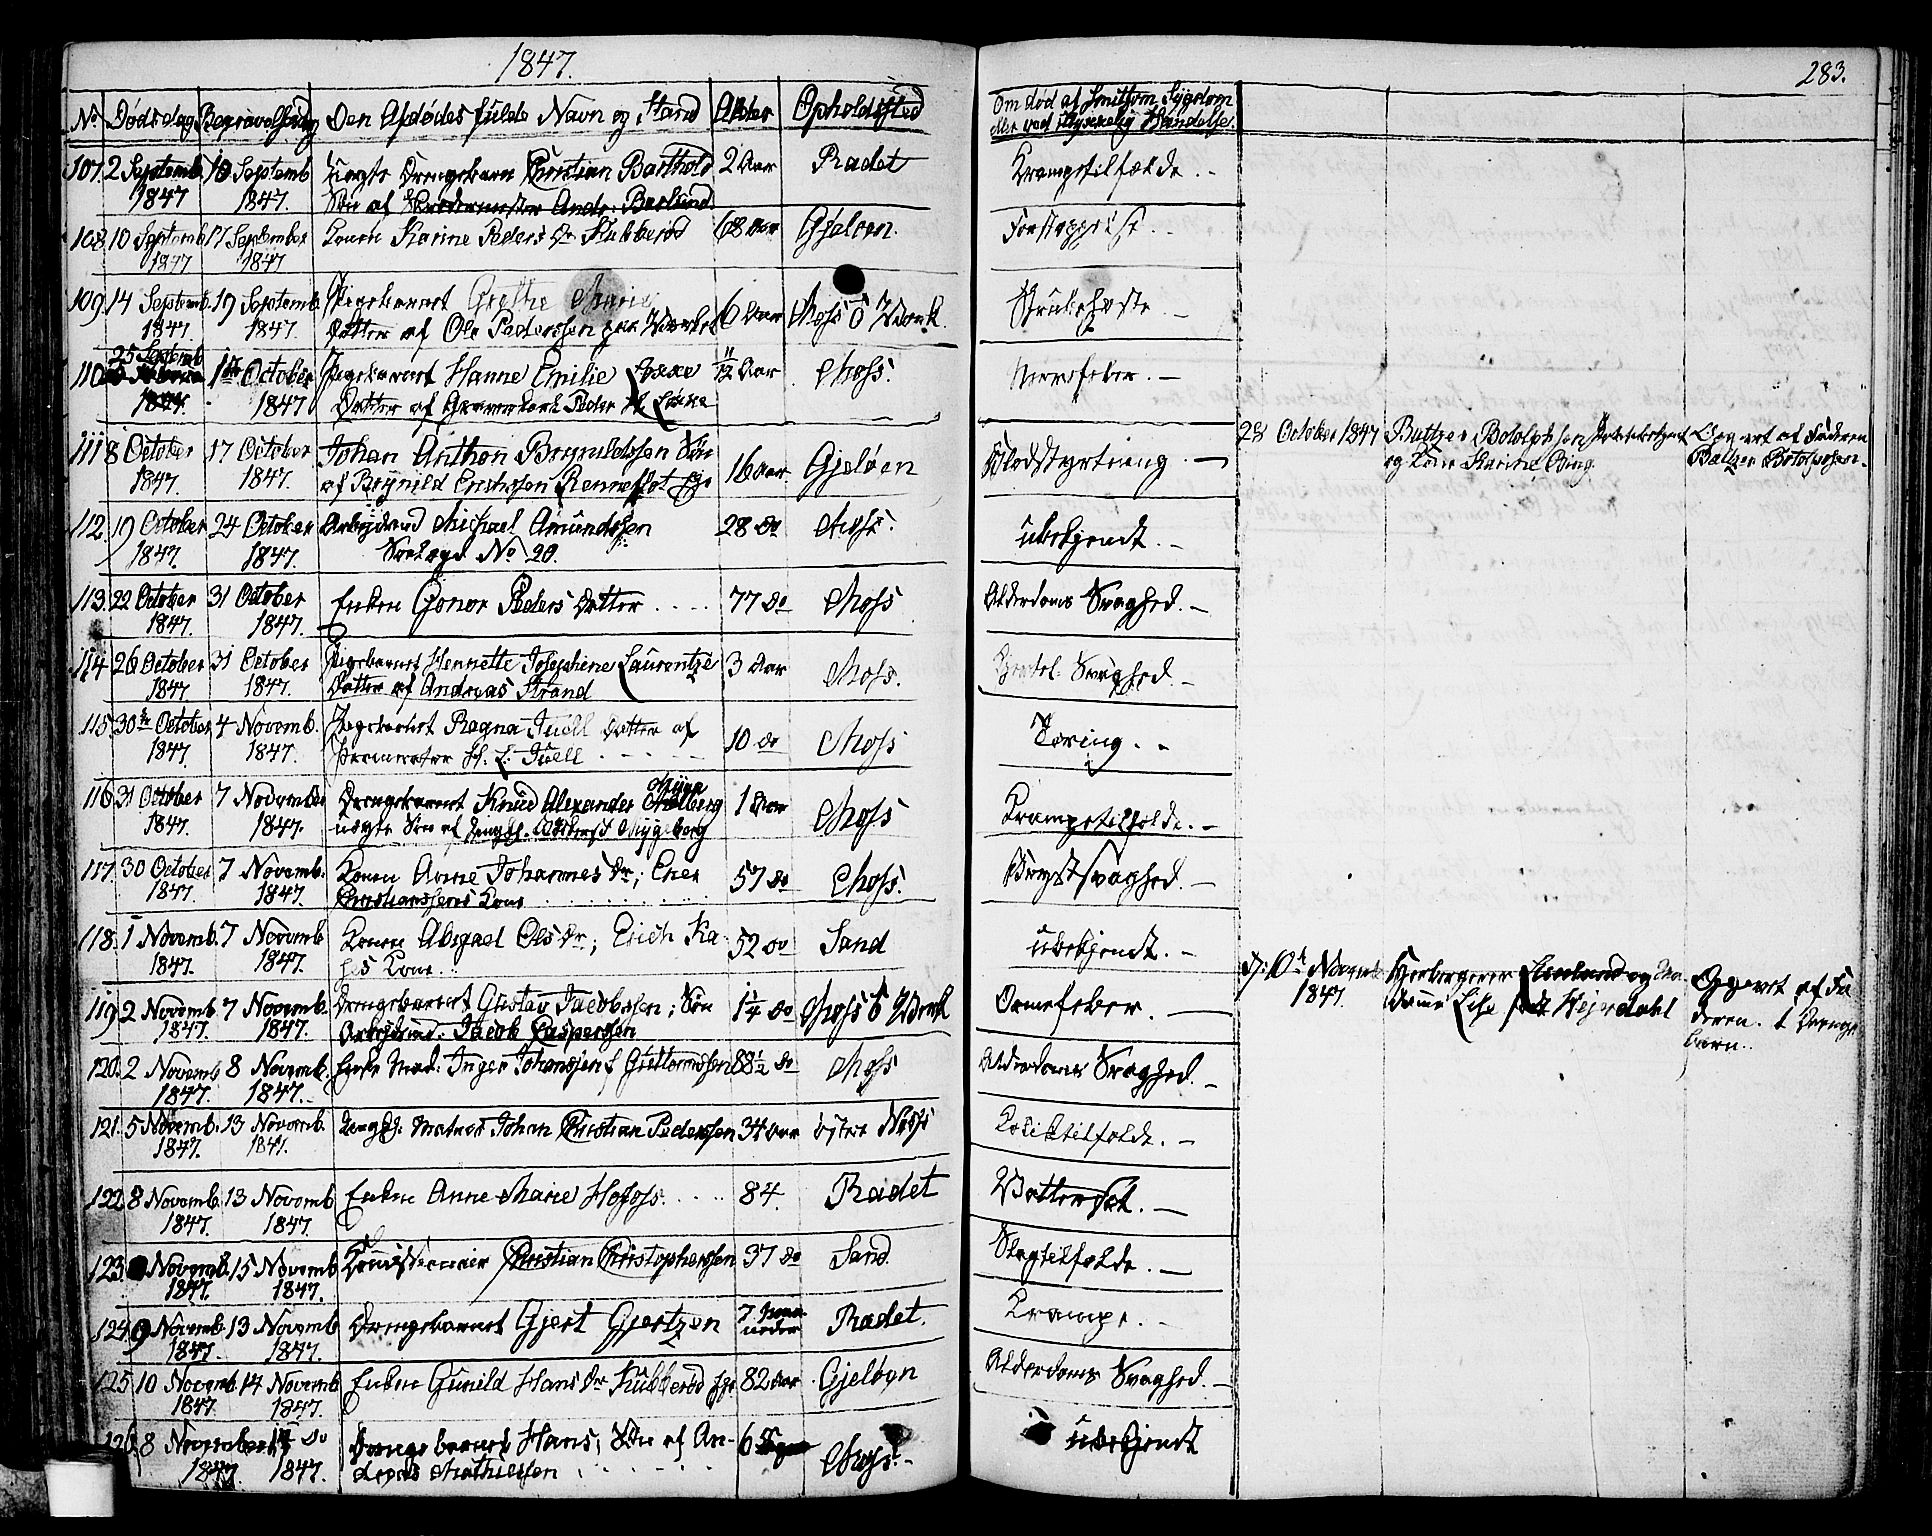 1847.
283.
No Dødsdag Begravelsesdag Den Afdødes fulde Navn og Stand Alder Opholdssted
Om død af Smitsom Sygdom
eller ved ulykkelig Hændelse.
107. 2 Septemb. 10 Septemb Drengebarn Christian Barthold 2 Aar Radet Krampetilfælde.
1847 1847. Søn af Andr: Berlund
108. 10 Septemb 17 September Konen Karine Peders Dr Kubberød 68 Aar Gjeløen. Forstoppelse.
1847 1847
109. 14 Septemb. 19 Septemb. Pigebarnet Grethe Marie 6 Aar Moss Værk. Strubehoste.
1847. 1847. Datter af Ole Pederssen paa Værket
110. 25 Septemb 1ste October Pigebarnet Hanne Emilie 11/12 Aar Moss. Nervefeber.
1847. 1847 Datter af Peder H.
111. 8 October 17 October Johan Anthon Brynildssen Søn 16 Aar. Gjeløen Blodstyrtning.
1847. 1847. af Brynild Renneflot Eje
28 October 1847 Baltzer Botolphsen og Kone Karine Bing. Opgivet af Faderen Baltzer Botolphsen.
112. 19 October 24 October Arbejdsmd Michael Amundssen 28 do Moss. ubekjendt.
1847. 1847. No 20.
113. 22 October 31 October Enken Gonor Peders Datter 77 do Moss Alderdoms Svaghed.
1847. 1847.
114 26 October 31 October Pigebarnet Hennette Josephine Laurentze 3 Aar Moss. Svaghed.
1847 1847. Datter af Andreas Strand
115. 30te October 4 Novemb. Pigebarnet Ragna Juell Datter af 10 do Moss Tæring.
1847 1847. H. L. Juell
116 31 October 7 November Drengebarnet Knud Alexander 1 Aar Moss Krampetilfælde.
1847. 1847. uægte Søn af Myggeborg
117. 30 October 7 Novemb. Konen Anne Johannes Dr; 57 do Moss. Brystsvaghed.
1847. 1847. Christianssens Kone
118. 1 Novemb. 7 Novemb Konen Abigael Ols Dr; Erich Ka- 52 do Sand ubekjendt.
1847. 1847. Kone
D: 10de Novemb. 1847. Herbergerer og Madame Lise født Hejerdahl Opgivet af Faderen. 1 Drengebarn.
119. 2 Novemb. 7 Novemb Drengebarnet Gustav Jacobssen; Søn 1 1/4 do Moss Værk Ormefeber.
1847. 1847. Arbejdsmd: Jacob Casperssen
120. 2 Novemb 8 Novemb. Enke Mad: Inger Johanssen f. Guttormssen 88 1/2 do Moss Alderdoms Svaghed.
1847. 1847.
121. 5 Novemb. 13 Novemb. Matros Johan Christian Pederssen 34 Aar Koliktilfælde.
1847. 1847.
122. 8 Novemb. 13 Novemb Enken Anne Marie 84. Radet Vattersot.
1847. 1847.
123. Novemb. 15 Novemb Christian Christopherssen 37 do Sand. Slagtilfælde.
1847. 1847.
124 9 Novemb. 13 Novemb Drengebarnet Gjert Gjertzen 7 Radet. Krampe.
1847. 1847.
125 10 Novemb. 14 Novemb Enken Gunild Hans Dr Kubberød Eje 82 Aar Gjeløen Alderdoms Svaghed.
1847 1847.
126. 8 November 14 do Drengebarnet Hans; Søn af An- 6 Moss. ubekjendt
1847 1847. dreas Mathiessen